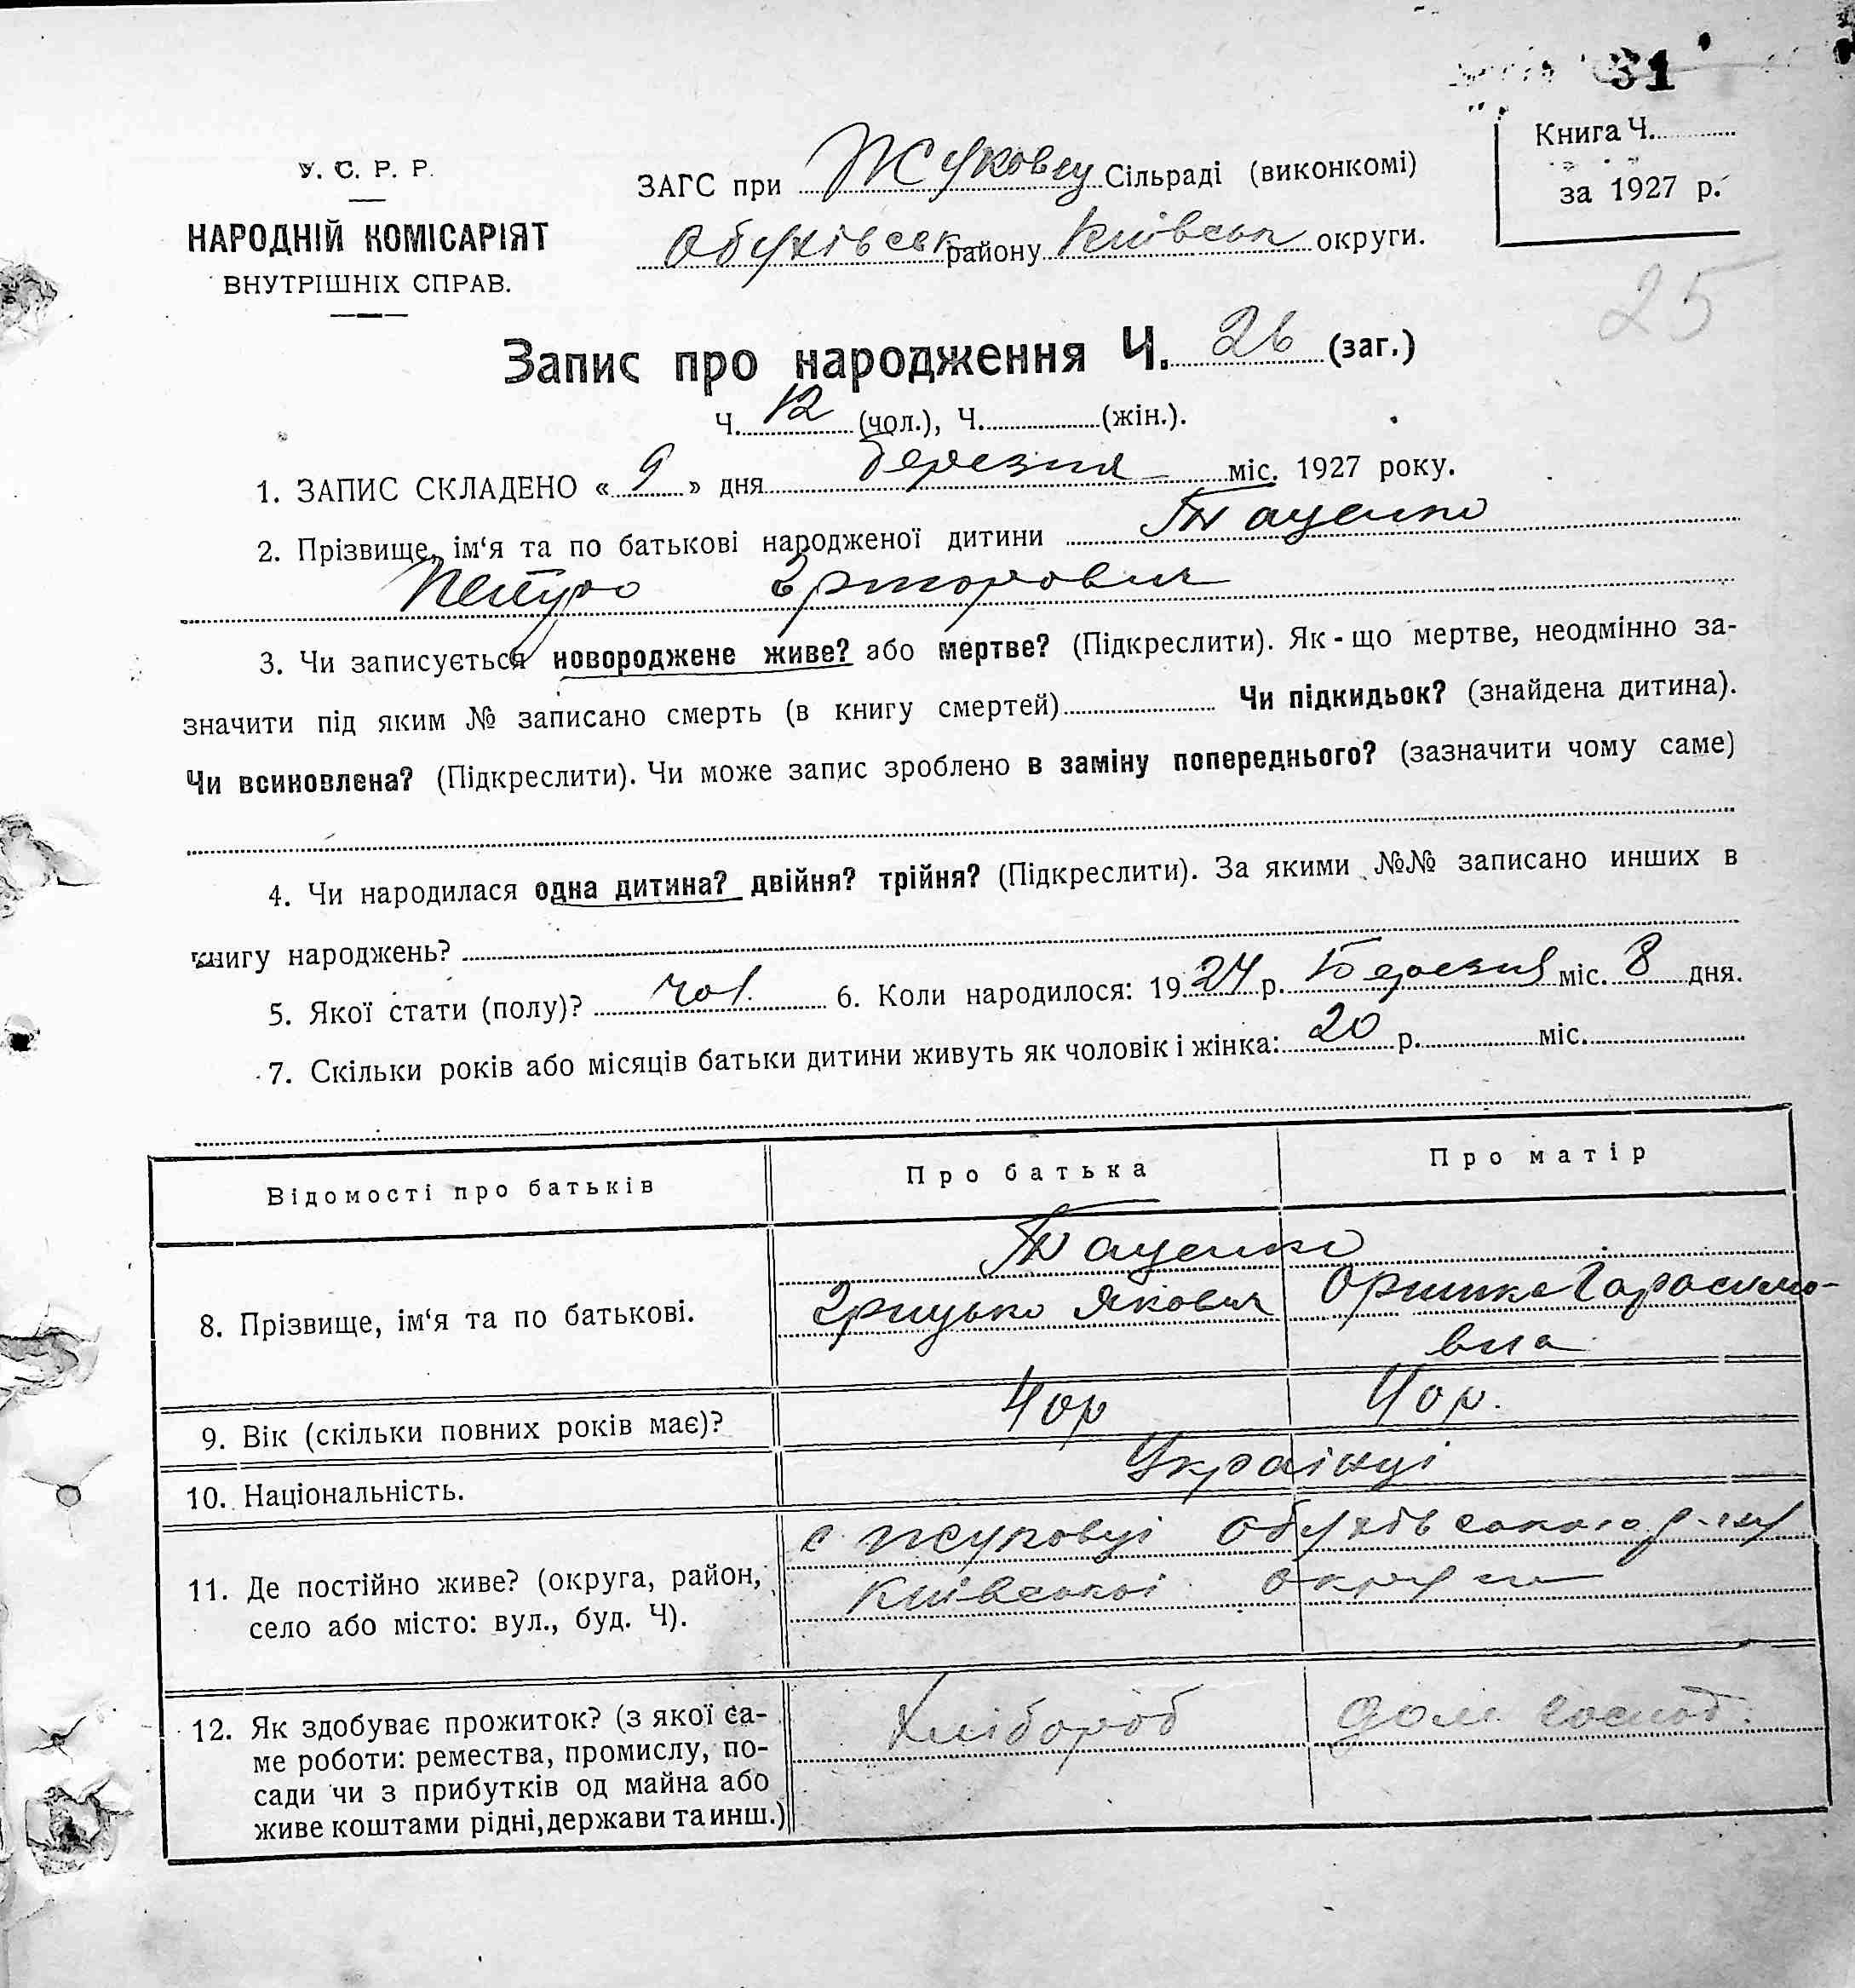 31
Книга Ч.
за 1927 р.
У. С. Р. Р.
НАРОДНІЙ КОМІСАРІЯТ
ВНУТРІШНІХ СПРАВ.
ЗАГС при Жуковец Сільраді (виконкомі)
Обухівськ району Київськ округи.
25
Запис про народження Ч. 26 (заг.)
Ч. 12 (чол.), Ч. (жін.).
1. ЗАПИС СКЛАДЕНО « 9 » дня березня міс. 1927 року.
2. Прізвище, ім‘я та по батькові народженої дитини Таценко
Петро
3. Чи записується новороджене живе? або мертве? (Підкреслити). Як-що мертве, неодмінно за-
значити під яким № записано смерть (в книгу смертей) Чи підкидьок? (знайдена дитина).
Чи всиновлена? (Підкреслити). Чи може запис зроблено в заміну попереднього? (зазначити чому саме)
4. Чи народилася одна дитина? двійня? трійня? (Підкреслити). За якими №№ записано инших в
книгу народжень?
5. Якої стати (полу)? чол. 6. Коли народилося: 19 27 р. Березня міс. 8 дня.
7. Скільки років або місяців батьки дитини живуть як чоловік і жінка: 20 р. міс.
Відомості про батьків Про батька Про матір
8. Прізвище, ім‘я та по батькові. Таценко
Грицько Якович Оришка Гарасимо-
вна
9. Вік (скільки повних років має)? 40 р 40 р.
10. Національність. Українці
11. Де постійно живе? (округа, район,
село або місто: вул., буд. Ч).
с Жуковці Обухівського р-ну
Київської округи
12. Як здобуває прожиток? (з якої са-
ме роботи: ремества, промислу, по-
сади чи з прибутків од майна або
живе коштами рідні, держави та инш.)
Хлібороб Дом. господ.